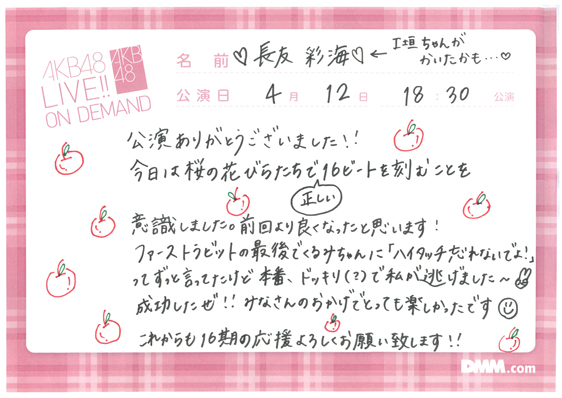 AKB48
LIVE!!
ON DEMAND
AKB
48
名前 ♡長友 彩海♡ ← I垣ちゃんが
かいたかも…♡
公演日 4月 12日 18:30 公演
公演ありがとうございました!!
今日は桜の花びらたちで16ビートを刻むことを
正しい
意識しました。前回より良くなったと思います!
ファーストラビットの最後でくるみちゃんに「ハイタッチ忘れないでよ!」
ってずっと言ってたけど本番、ドッキリ(?)で私が逃げました〜
成功したぜ!! みなさんのおかげでとっても楽しかったです
これからも16期の応援よろしくお願い致します!!
DMM.com